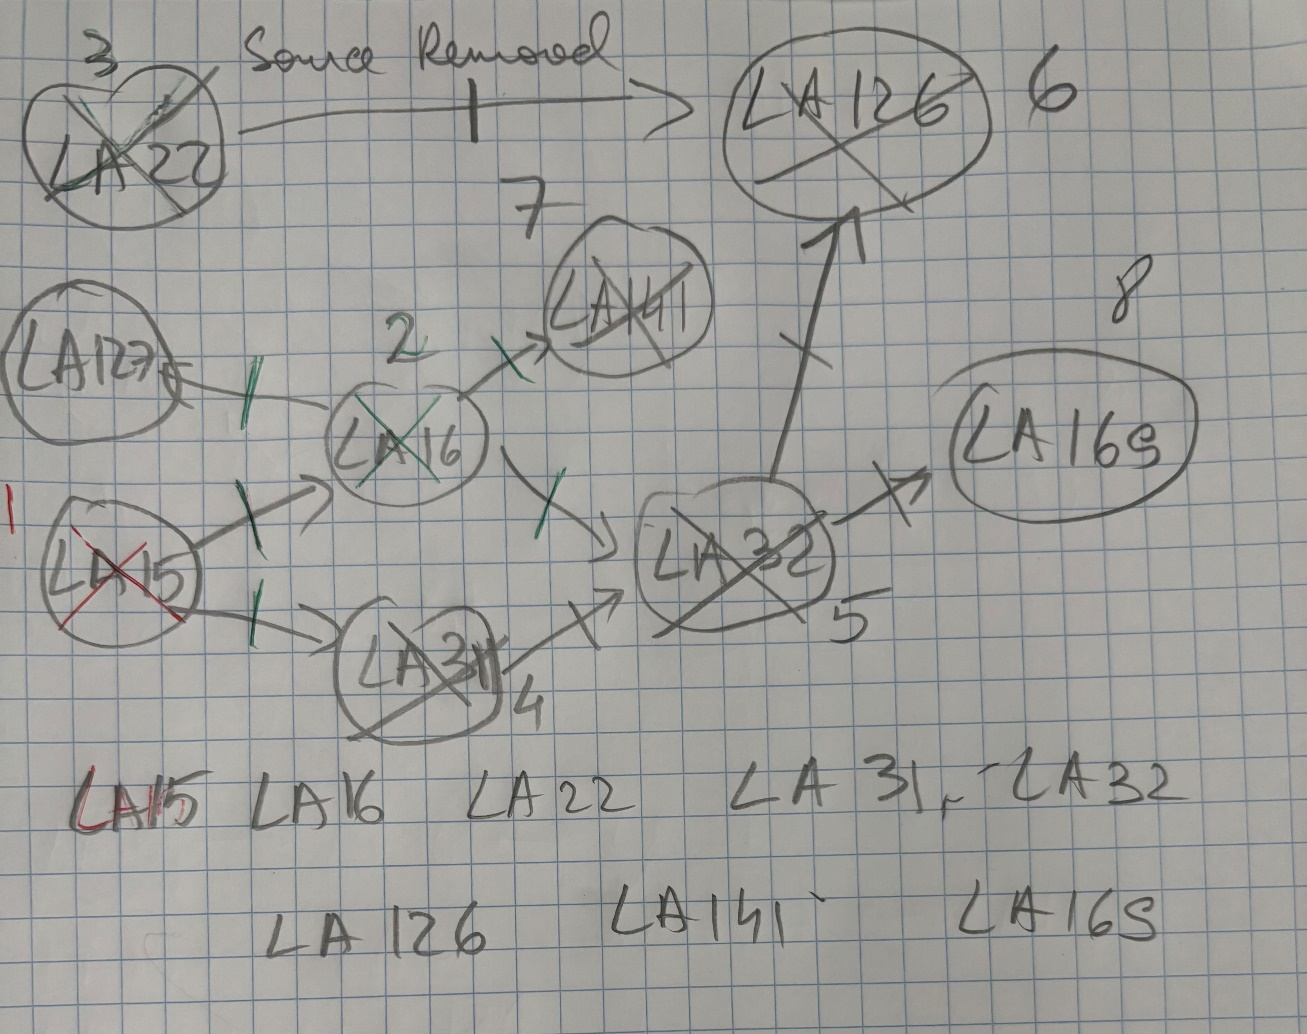 3 Source Removed
LA 22
LA 126 6
7
LA 141
LA 127
2
8
LA 16
LA 16s
1
LA 15
LA 32
5
LA 31
4
LA15 LA16 LA22 LA 31, -LA32
LA 126 LA141 LA16s